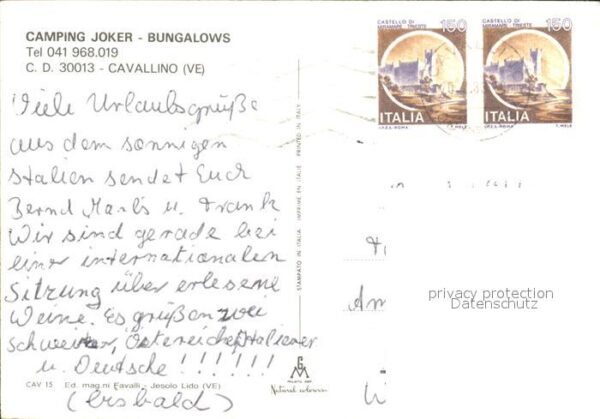 CAMPING JOKER - BUNGALOWS
Tel 041 968.019
C. D. 30013 - CAVALLINO (VE)
Viele Urlaubsgrüße
aus dem sonnigen
Italien sendet Euch
Bernd u. Frank
Wir sind gerade bei
einer internationalen
Sitzung über erlesene
Weine. Es grüßen zwei
Schweizer, Östereicher, Italiener
u. Deutsche !!!!!!
CAV 15 Ed. mag.ni Favalli - Jesolo Lido (VE)
(bisbald)
STAMPATO IN ITALIA IMPRIME EN ITALIE PRINTED IN ITALY
Natural colour
CASTELLO DI
MIRAMARE - TRIESTE
150
ITALIA
I.P.Z.S.-ROMA T. MELE
CASTELLO DI
MIRAMARE - TRIESTE
150
ITALIA
I.P.Z.S.-ROMA T. MELE
privacy protection
Datenschutz